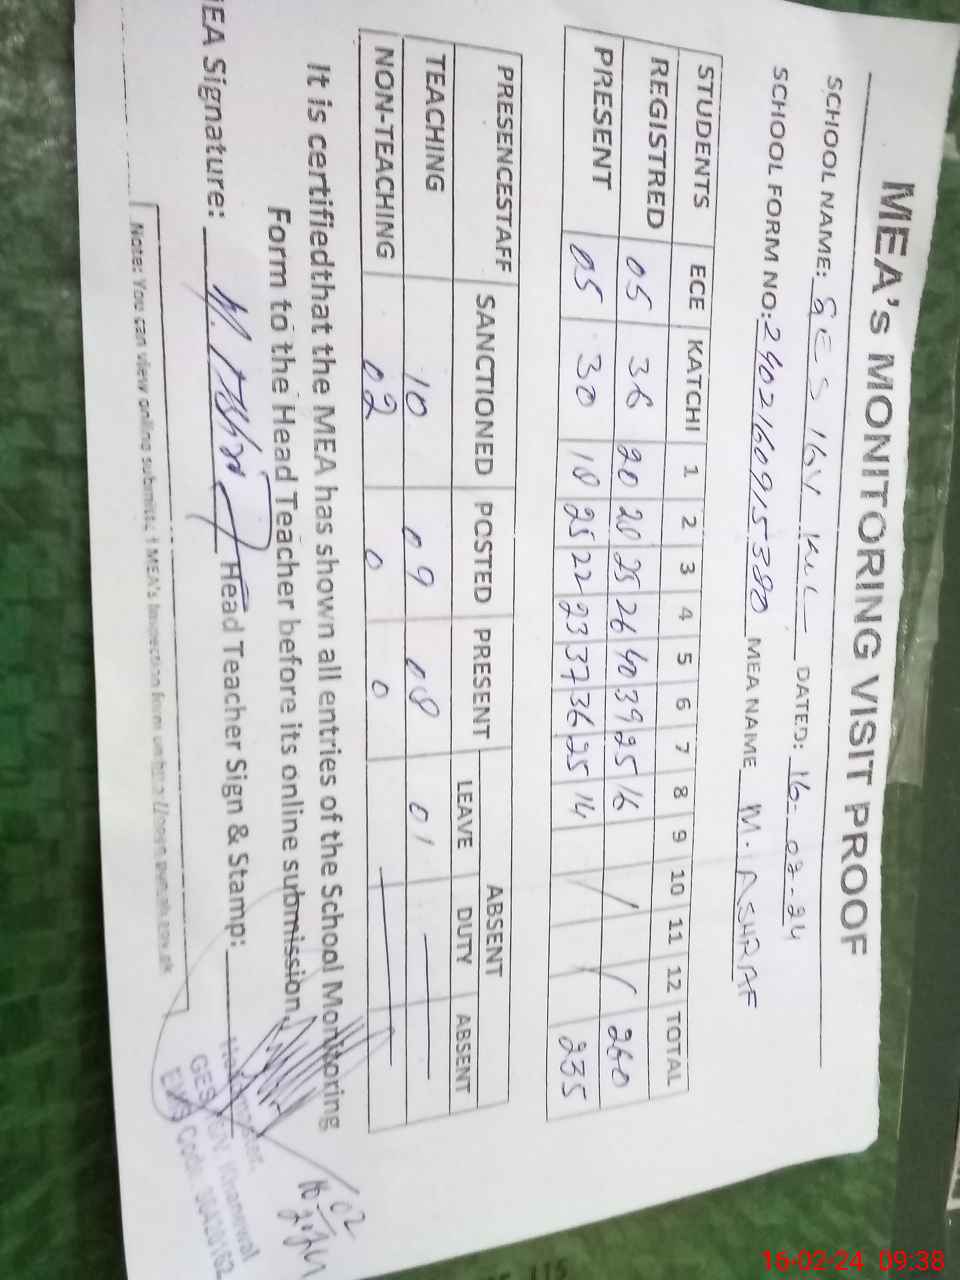 MEA's MONITORING VISIT PROOF
SCHOOL NAME: GES 16V KWL DATED: 16-02-24
SCHOOL FORM NO: 2402160915380 MEA NAME M. ASHRAF
STUDENTS ECE KATCHI 1 2 3 4 5 6 7 8 9 10 11 12 TOTAL
REGISTRED 05 36 20 28 25 26 40 39 25 16 260
PRESENT 05 30 18 25 22 23 37 36 25 14 235
PRESENCESTAFF SANCTIONED POSTED PRESENT ABSENT
LEAVE DUTY ABSENT
TEACHING 10 09 08 01
NON-TEACHING 02 0 0
It is certifiedthat the MEA has shown all entries of the School Monitoring
Form to the Head Teacher before its online submission.
MEA Signature: M. Ashraf Head Teacher Sign & Stamp:
16/02
Headmaster,
GES Khanewal
EMIS Code:
Note: You can view online submitted MEA's Inspection form on
16-02-24 09:38